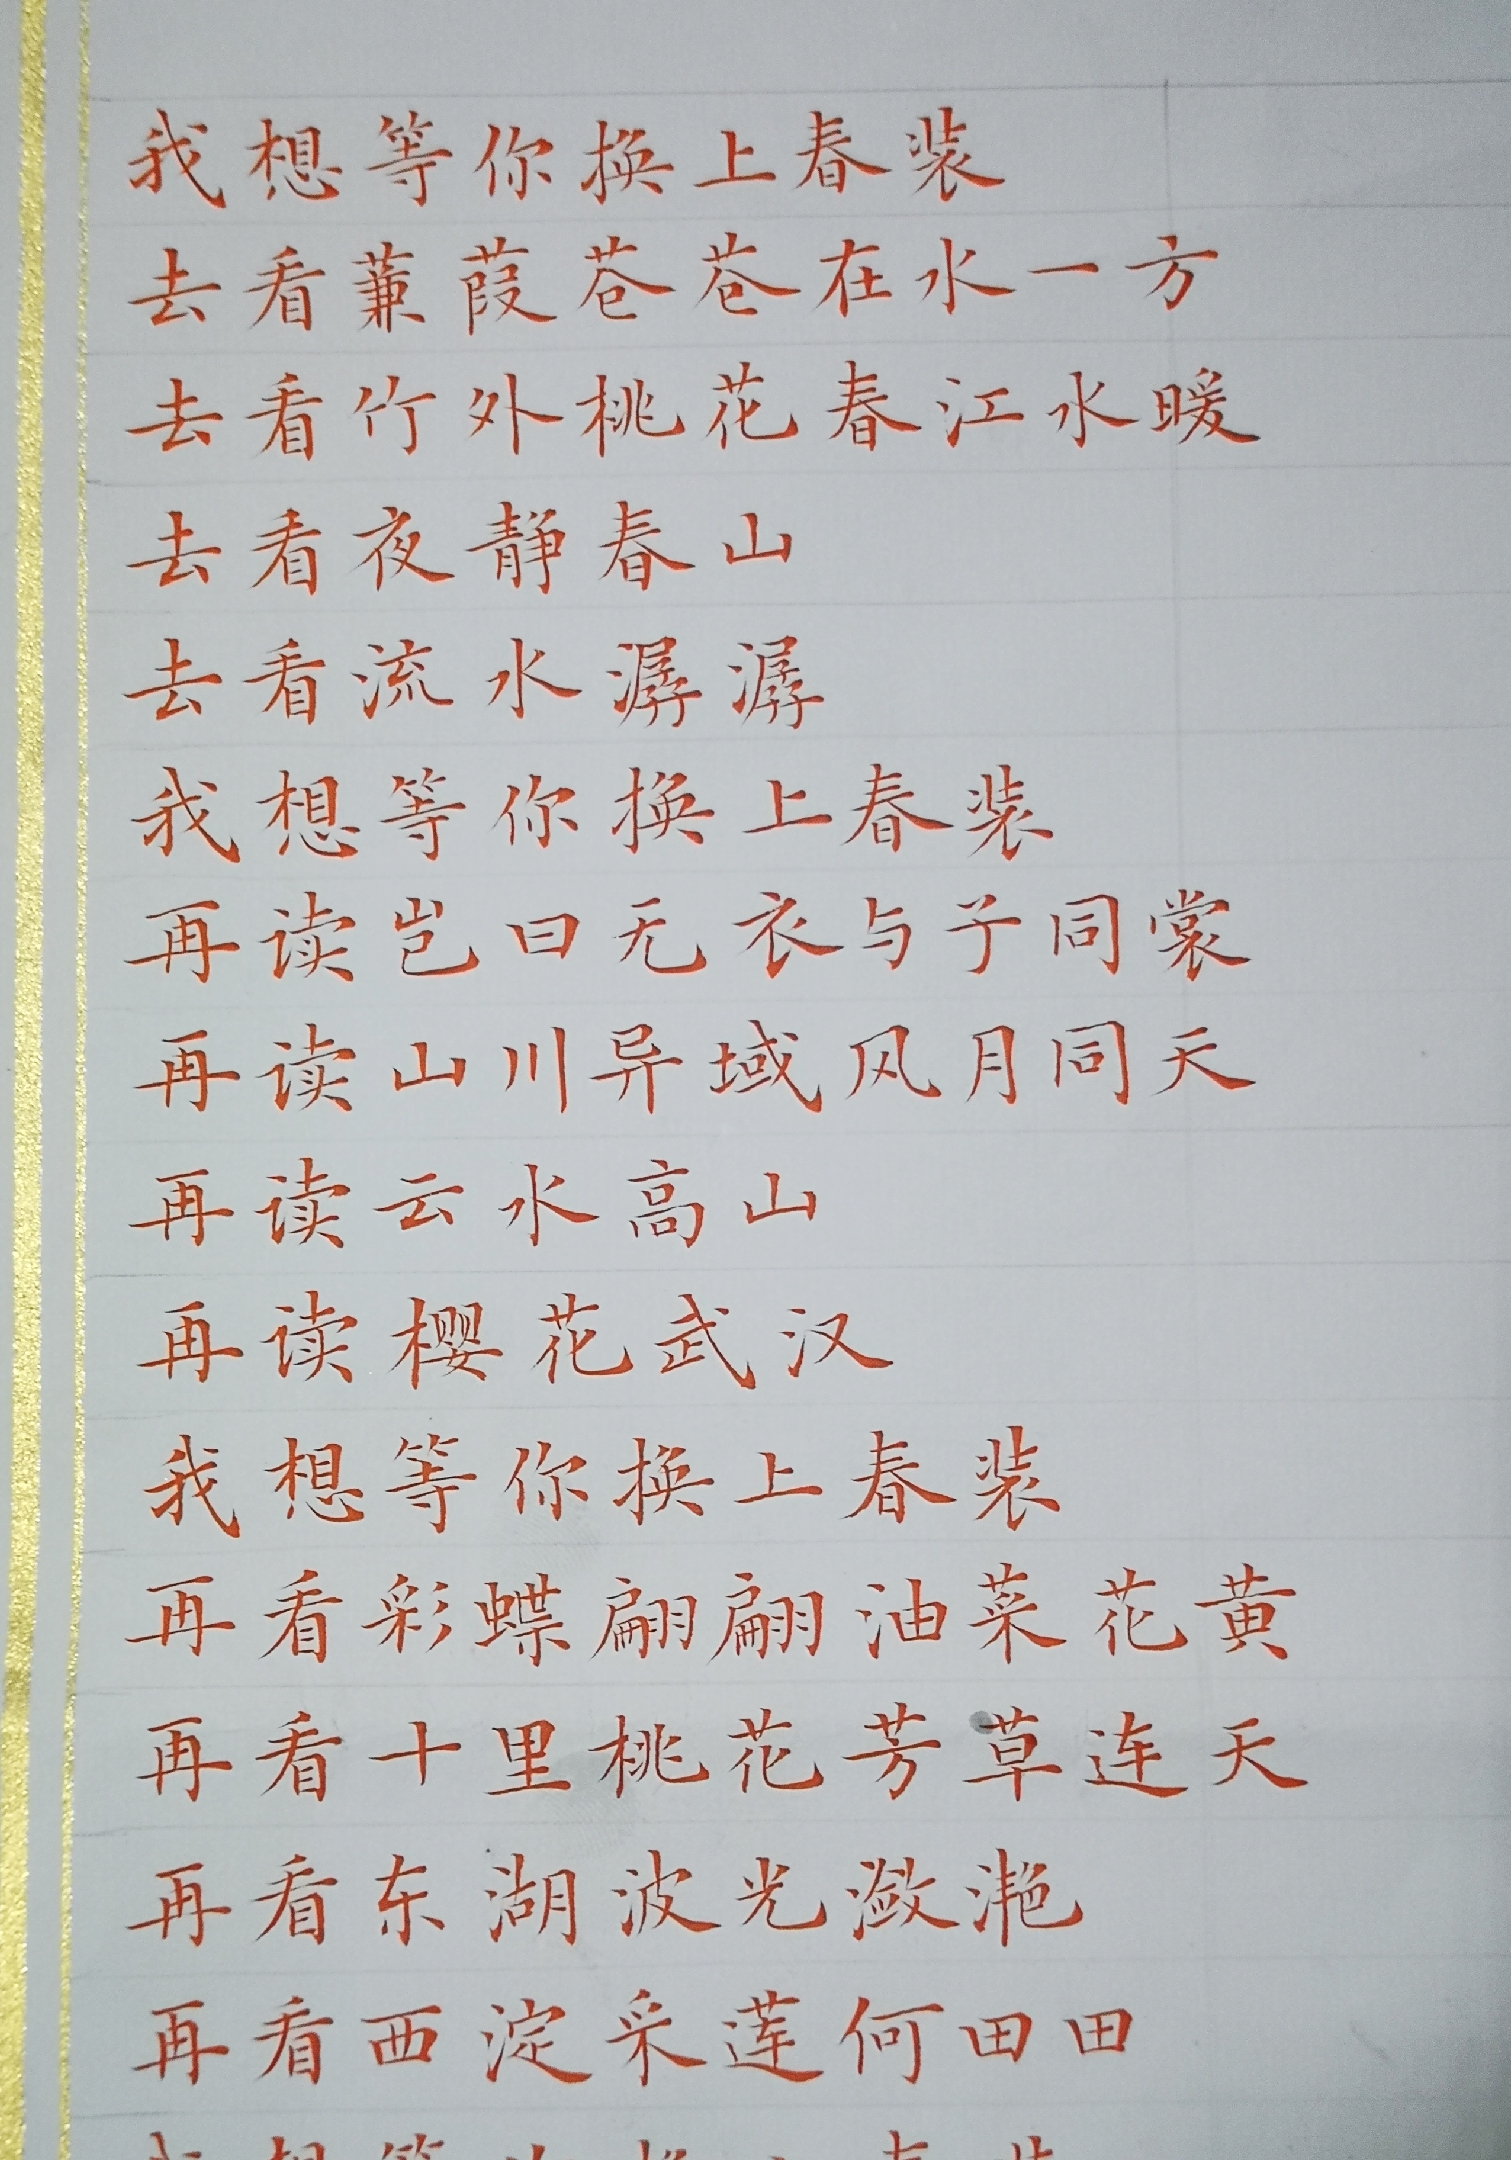 我想等你换上春装
去看蒹葭苍苍在水一方
去看竹外桃花春江水暖
去看夜静春山
去看流水潺潺
我想等你换上春装
再读岂曰无衣与子同裳
再读山川异域风月同天
再读云水高山
再读樱花武汉
我想等你换上春装
再看彩蝶翩翩油菜花黄
再看十里桃花芳草连天
再看东湖波光潋滟
再看西淀采莲何田田
我想等你换上春装